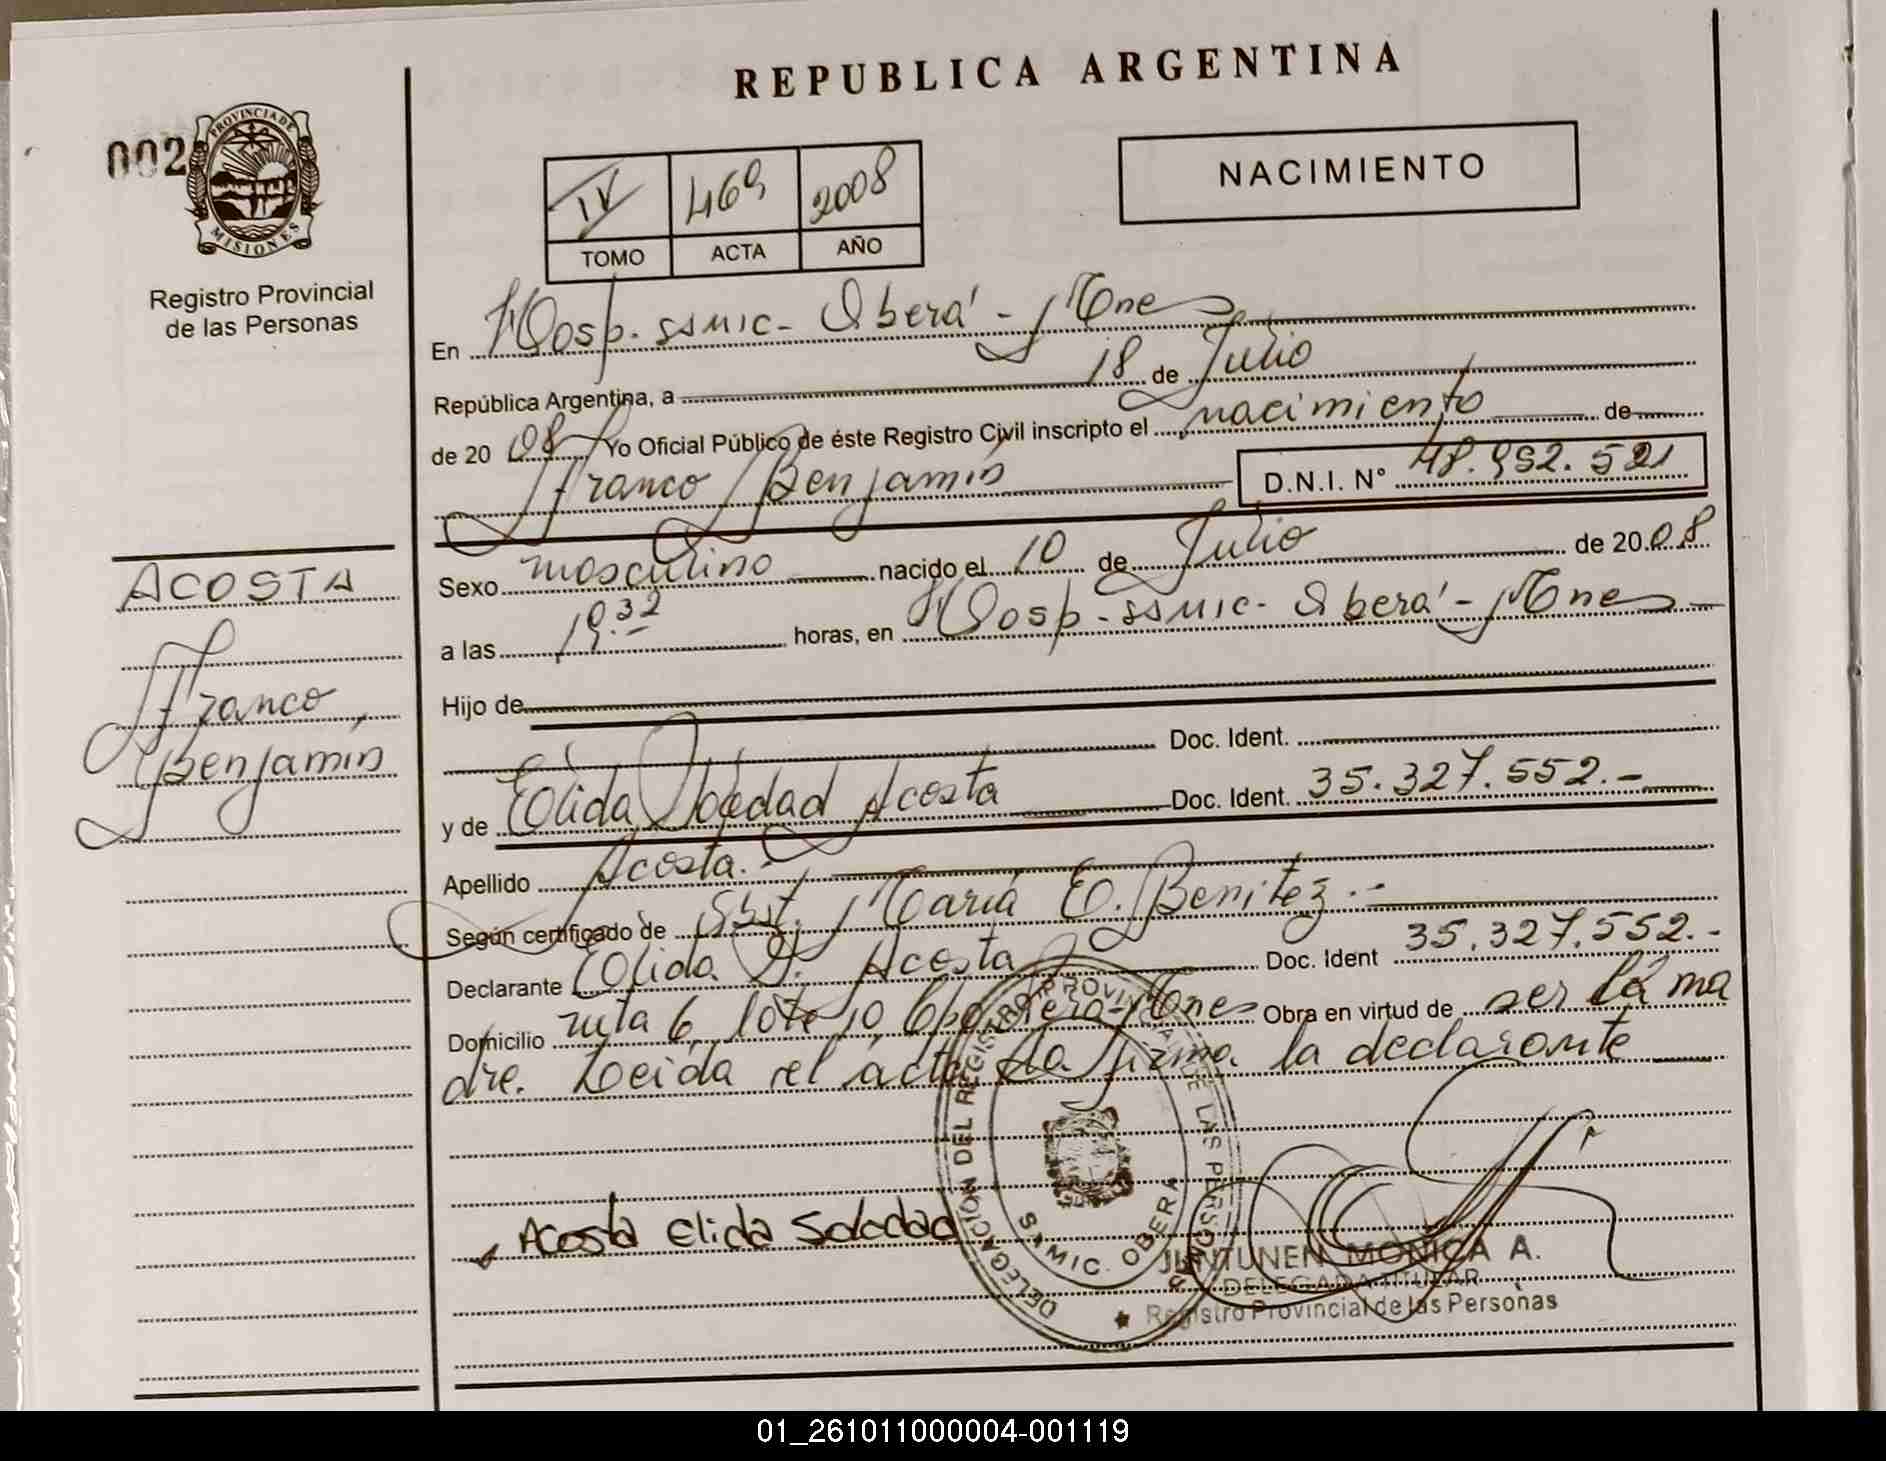 REPUBLICA ARGENTINA
002
PROVINCIA DE
MISIONES
Registro Provincial
de las Personas
IV 469 2008
TOMO ACTA AÑO
NACIMIENTO
En Hosp. SSMIC - Oberá - Mnes
República Argentina, a 18 de Julio
de 2008 Yo Oficial Público de éste Registro Civil inscripto el nacimiento de
Franco Benjamín D.N.I. Nº 48.952.521
Sexo masculino nacido el 10 de Julio de 2008
a las 19.32 horas, en Hosp. SSMIC - Oberá - Mnes
Hijo de
Doc. Ident.
y de Elida Soledad Acosta Doc. Ident. 35.327.552.-
Apellido Acosta.-
Según certificado de Obst. María E. Benitez.-
Declarante Elida S. Acosta Doc. Ident 35.327.552.-
Domicilio ruta 6, lote 10, Mnes Obra en virtud de ser la ma
dre. Leída el acta la firma la declarante
ACOSTA
Franco,
Benjamín
Acosta Elida Soledad
DELEGACION DEL REGISTRO PROVINCIAL DE LAS PERSONAS
SAMIC. OBERA
JUNTUNEN MONICA A.
DELEGADA TITULAR
Registro Provincial de las Personas
01_261011000004-001119